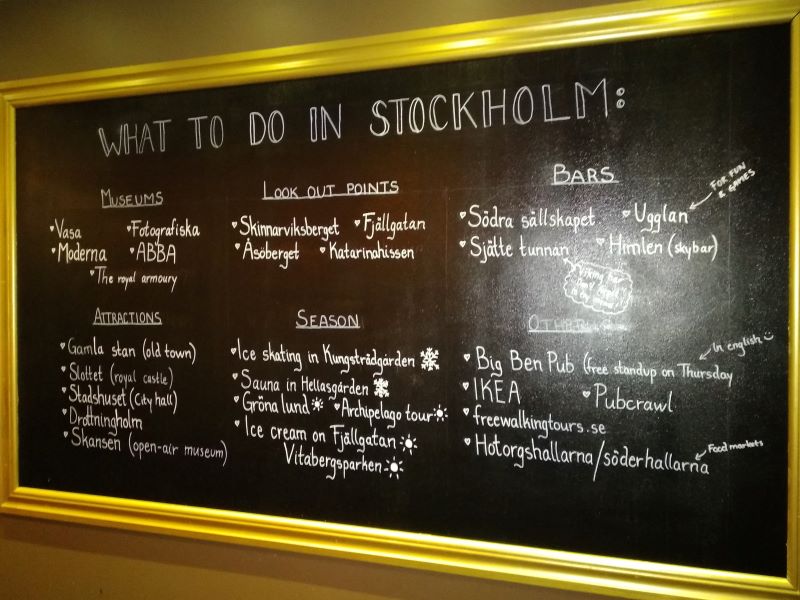 WHAT TO DO IN STOCKHOLM:
MUSEUMS
Vasa Fotografiska
Moderna ABBA
The royal armoury
LOOK OUT POINTS
Skinnarviksberget Fjällgatan
Åsöberget Katarinahissen
BARS
Södra sällskapet Ugglan
FOR FUN
& GAMES
Sjätte tunnan Himlen (skybar)
Viking bar
ATTRACTIONS
Gamla stan (old town)
Slottet (royal castle)
Stadshuset (City hall)
Drottningholm
Skansen (open-air museum)
SEASON
Ice skating in Kungsträdgården
Sauna in Hellasgården
Gröna lund Archipelago tour
Ice cream on Fjällgatan
Vitabergsparken
In english
Big Ben Pub (free standup on Thursday
IKEA Pubcrawl
freewalkingtours.se
Hötorgshallarna/söderhallarna
Food markets